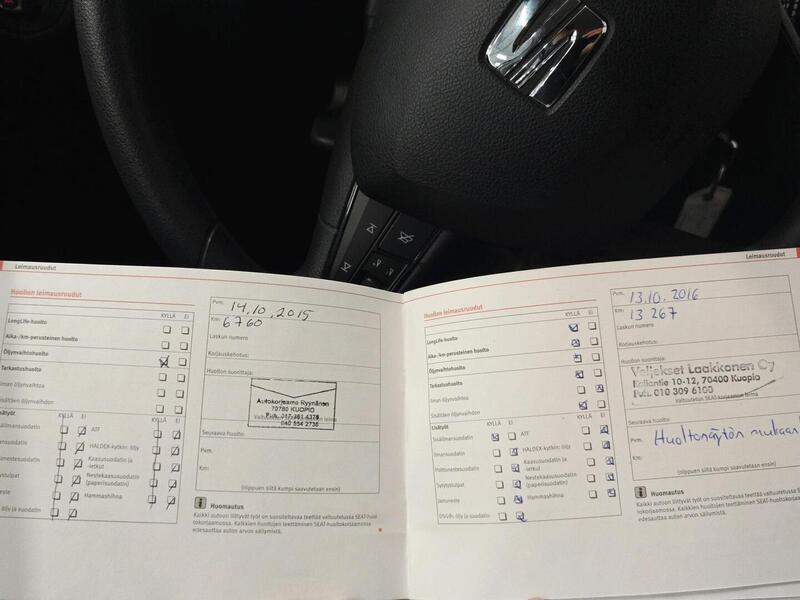 Leimausruudut
Huollon leimausruudut
KYLLÄ EI
LongLife-huolto
Aika-/km-perusteinen huolto
Öljynvaihtohuolto
Tarkastushuolto
ilman öljynvaihtoa
Sisältäen öljynvaihdon
KYLLÄ EI
KYLLÄ EI
ATF
HALDEX-kytkin: öljy
Kaasusuodatin ja -letkut
Nestekaasusuodatin (paperisuodatin)
Hammashihna
öljy ja suodatin
Pvm. 14.10.2015
Km: 6760
Laskun numero
Korjauskehotus:
Huollon suorittaja:
Autokorjaamo Ryynänen
70780 KUOPIO
Puh. 017-361 4375
040 554 2736
Seuraava huolto:
Pvm.
Km:
(riippuen siitä kumpi saavutetaan ensin)
Huomautus
Kaikki autoon liittyvät työt on suositeltavaa teettää valtuutetussa SEAT-huol-
tokorjaamossa. Kaikkien huoltojen teettäminen SEAT-huoltokorjaamossa
edesauttaa auton arvon säilymistä.
Leimausruudut
Huollon leimausruudut
KYLLÄ EI
LongLife-huolto
Aika-/km-perusteinen huolto
Öljynvaihtohuolto
Tarkastushuolto
ilman öljynvaihtoa
Sisältäen öljynvaihdon
Lisätyöt KYLLÄ EI
KYLLÄ EI
Sisäilmansuodatin
ATF
Ilmansuodatin
HALDEX-kytkin: öljy
Polttonestesuodatin
Kaasusuodatin ja -letkut
Sytytystulpat
Nestekaasusuodatin (paperisuodatin)
Jarruneste
Hammashihna
DSG®: öljy ja suodatin
Pvm. 13.10.2016
Km: 13 267
Laskun numero
Korjauskehotus:
Huollon suorittaja:
Veljekset Laakkonen Oy
Kallantie 10-12, 70400 Kuopio
Puh. 010 309 6100
Valtuutetun SEAT-korjaamon leima
Seuraava huolto:
Pvm. Huoltonäytön mukaan
Km:
(riippuen siitä kumpi saavutetaan ensin)
Huomautus
Kaikki autoon liittyvät työt on suositeltavaa teettää valtuutetussa
tokorjaamossa. Kaikkien huoltojen teettäminen SEAT-huoltokorjaamossa
edesauttaa auton arvon säilymistä.